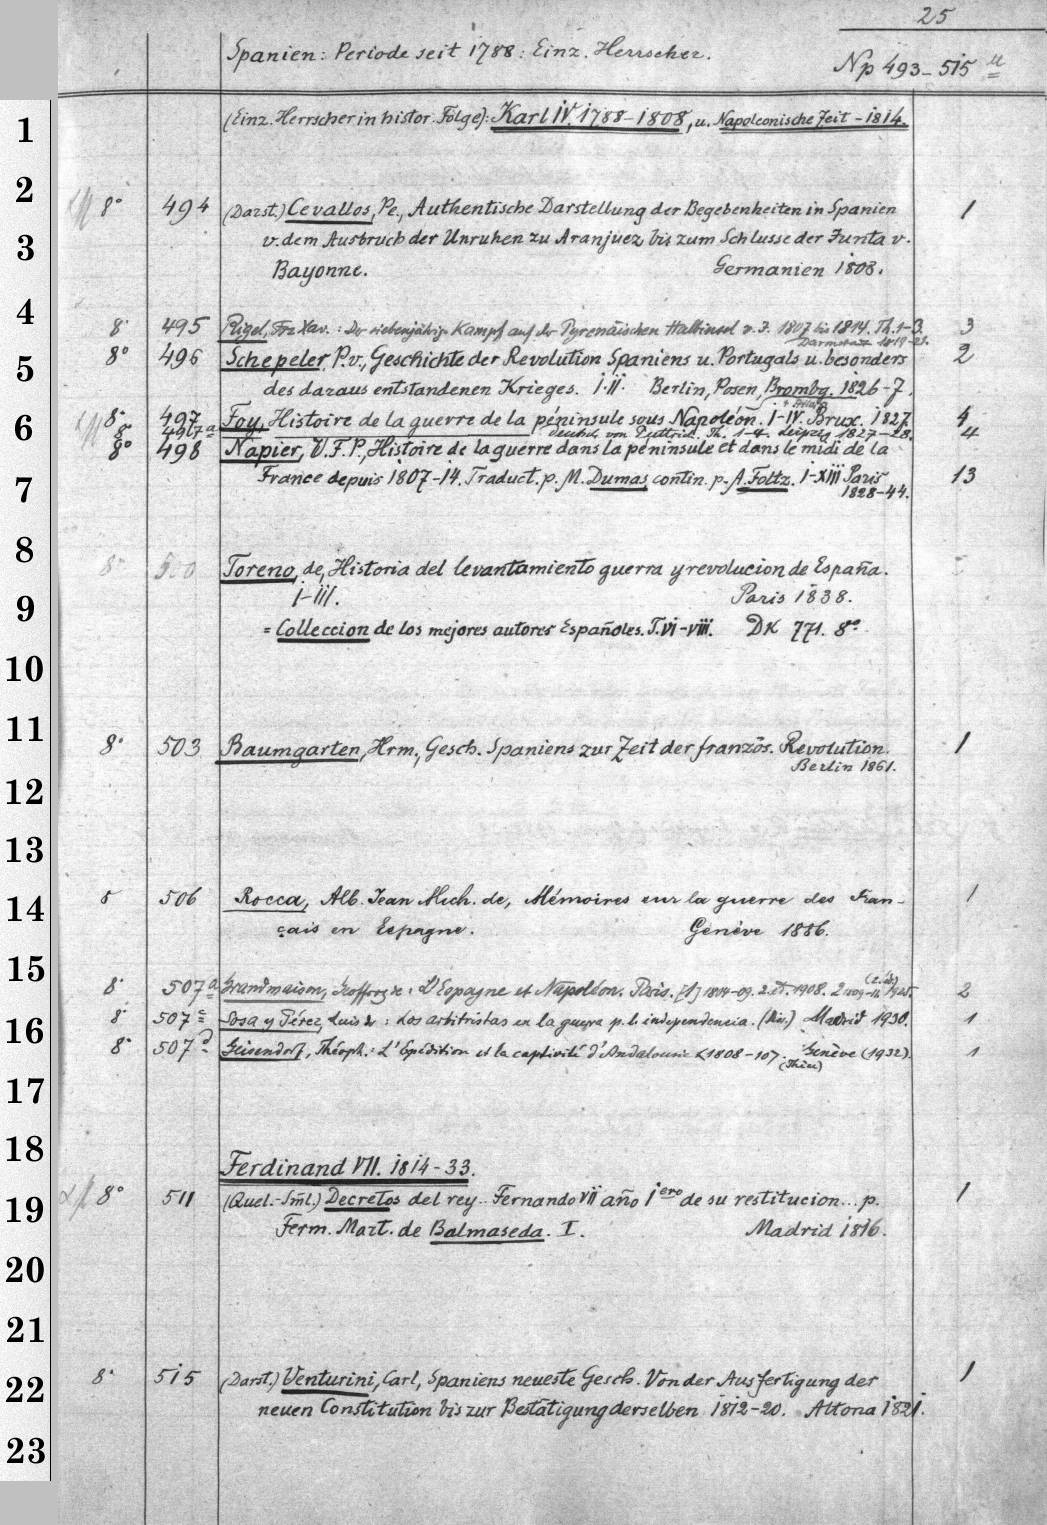 25
Spanien: Periode seit 1788: Einz. Herrscher.
Np 493-515 u
1
(Einz. Herrscher in histor. Folge): Karl IV. 1788-1808, u. Napoleonische Zeit -1814.
2
8° 494 (Darst.) Cevallos, Pe., Authentische Darstellung der Begebenheiten in Spanien 1
3
v. dem Ausbruch der Unruhen zu Aranjuez bis zum Schlusse der Junta v.
Bayonne. Germanien 1808.
4
8° 495 Rigel, Frz Xav.: Der siebenjährige Kampf auf der Pyrenäischen Halbinsel v. J. 1807 bis 1814. Th. 1-3. 3
Darmstadt 1819-21.
8° 496 Schepeler, P. v., Geschichte der Revolution Spaniens u. Portugals u. besonders 2
5
des daraus entstandenen Krieges. I.II. Berlin, Posen, Brombg. 1826-7.
8° 497 Foy, Histoire de la guerre de la péninsule sous Napoléon. I-IV. Brux. 1827. 4
6
8° 497a deutsch von Th. 1-4. Leipzig 1827-28. 4
8° 498 Napier, W. F. P., Histoire de la guerre dans la péninsule et dans le midi de la
7
France depuis 1807-14. Traduct. p. M. Dumas, contin. p. A. Foltz. I-XIII Paris 13
1828-44.
8
8° 500 Toreno, de, Historia del levantamiento guerra y revolucion de España.
9
I-III. Paris 1838.
= Colleccion de los mejores autores Españoles. T. VI-VIII. DK 771. 8°.
10
11
8° 503 Baumgarten, Hrm., Gesch. Spaniens zur Zeit der französ. Revolution. 1
Berlin 1861.
12
13
14
8 506 Rocca, Alb. Jean Mich. de, Mémoires sur la guerre des Fran- 1
çais en Espagne. Genève 1886.
15
8° 507a Grandmaison, Geoffroy de: L'Espagne et Napoléon. Paris. [1] 1804-09. 2. éd. 1908. 2 1809-11. 1925. 2
16
8° 507c Sosa y Pérez, Luis de: Los arbitristas en la guerra p. l. independencia. (Dis.) Madrid 1930. 1
8° 507d Geisendorf, Théoph.: L'Expédition et la captivité d'Andalousie <1808-10>. Genève (1932). 1
17
18
Ferdinand VII. 1814-33.
19
8° 511 (Quel.-Sml.) Decretos del rey.. Fernando VII año 1ero de su restitucion... p. 1
Ferm. Mart. de Balmaseda. I. Madrid 1816.
20
21
22
8° 515 (Darst.) Venturini, Carl, Spaniens neueste Gesch. Von der Ausfertigung der 1
neuen Constitution bis zur Bestätigung derselben 1812-20. Altona 1821.
23